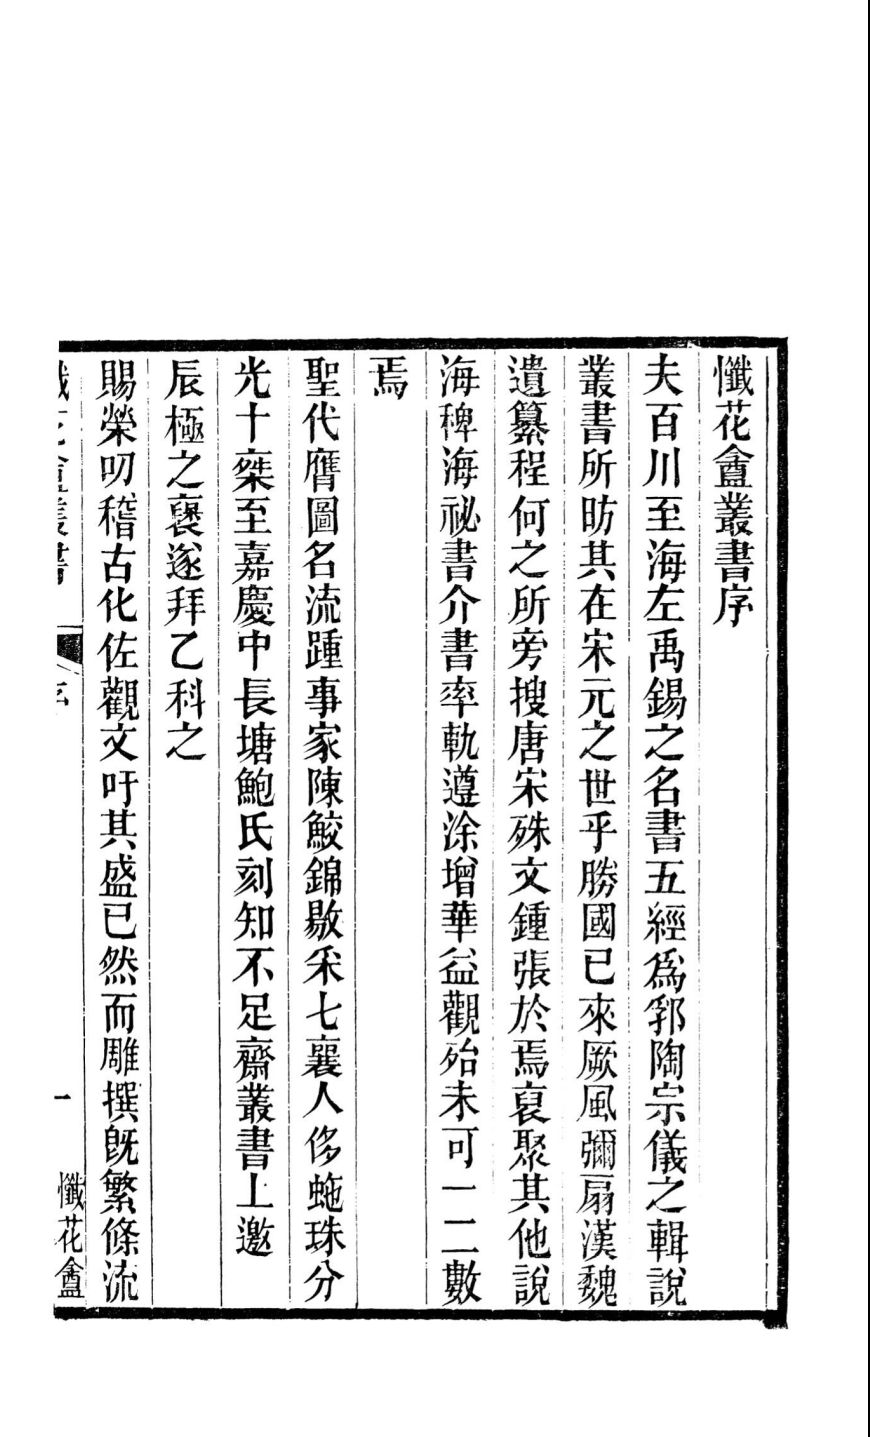 懺花盦叢書序
夫百川至海左禹錫之名書五經爲郛陶宗儀之輯說
叢書所昉其在宋元之世乎勝國已來厥風彌扇漢魏
遺纂程何之所旁搜唐宋殊文鍾張於焉裒聚其他說
海稗海祕書介書率軌遵涂增華益觀殆未可一二數
焉
聖代膺圖名流踵事家陳鮫錦敭釆七襄人侈虵珠分
光十椉至嘉慶中長塘鮑氏刻知不足齋叢書上邀
辰極之襃遂拜乙科之
賜榮叨稽古化佐觀文吁其盛已然而雕撰旣繁條流
懺花盦叢書
序
一
懺花盦